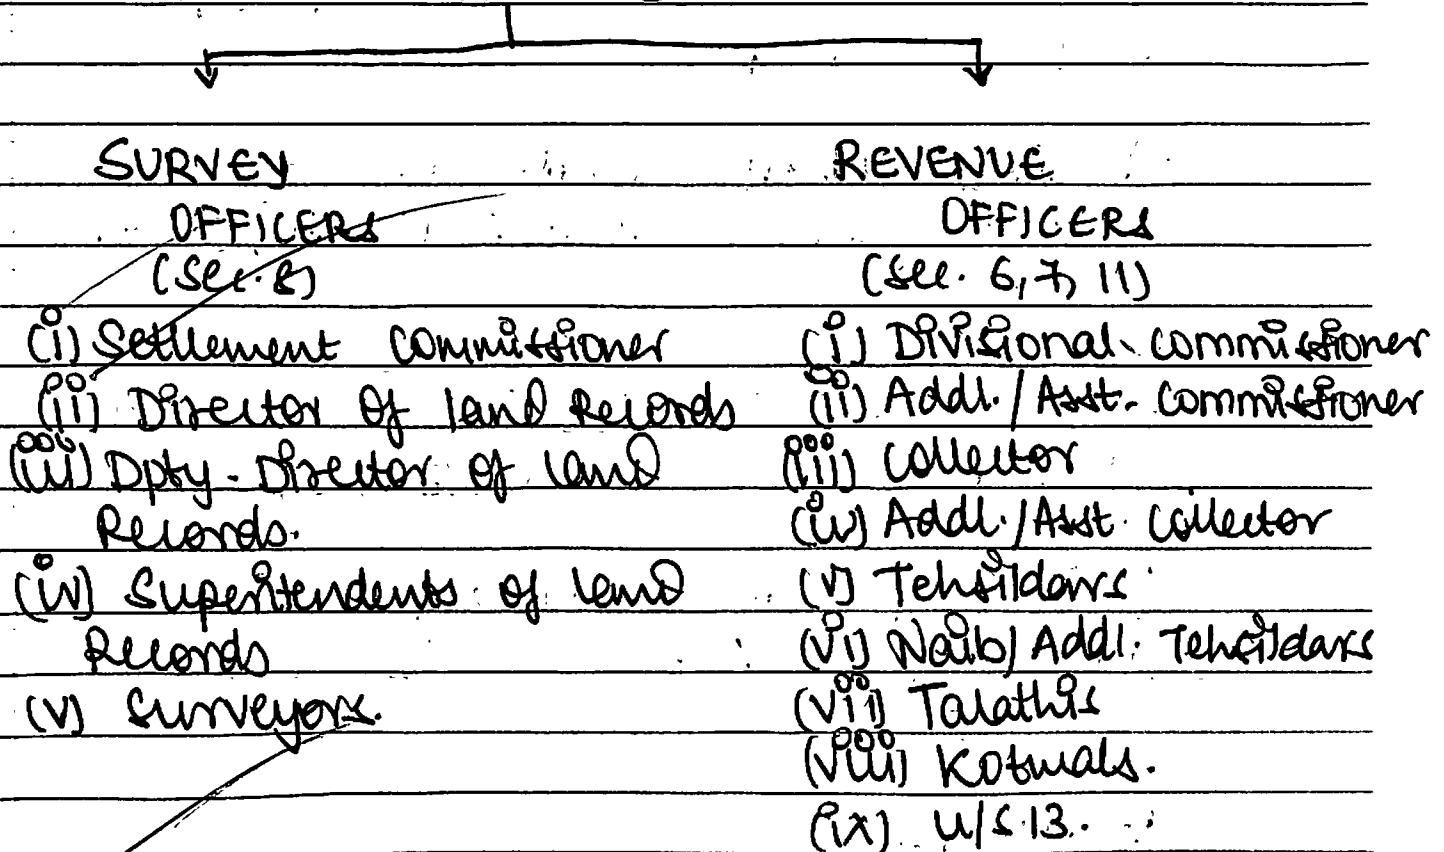 SURVEY
OFFICERS
(Sec. 8)
(i) Settlement Commissioner
(ii) Director of land Records
(iii) Dpty. Director of land
Records.
(iv) Superitendents of land
Records
(v) Surveyors.
REVENUE
OFFICERS
(Sec. 6, 7, 11)
(i) Divisional commissioner
(ii) Addl. / Asst. commissioner
(iii) Collector
(iv) Addl. / Asst. Collector
(v) Tehsildars
(vi) Naib/ Addl. Tehsildars
(vii) Talathis
(viii) Kotwals.
(ix) U/S 13.